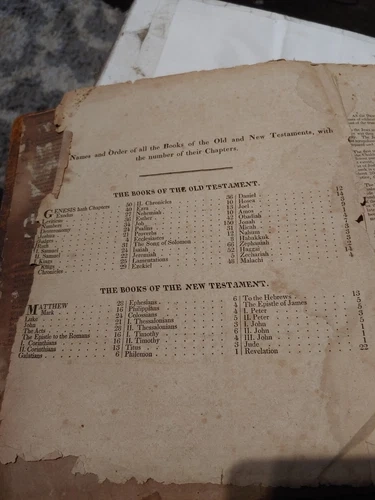 Names and Order of all the Books of the Old and New Testaments, with
the number of their Chapters.
THE BOOKS OF THE OLD TESTAMENT.
GENESIS hath Chapters 50 II. Chronicles 36 Daniel 12
Exodus 40 Ezra 10 Hosea 14
Leviticus 27 Nehemiah 13 Joel
Numbers 36 Esther 10 Amos
Deuteronomy 34 Job 42 Obadiah
Joshua 24 Psalms 150 Jonah
Judges 21 Proverbs 31 Micah
Ruth 4 Ecclesiastes 12 Nahum
I. Samuel 31 The Song of Solomon Habakkuk
II. Samuel 24 Isaiah 66 Zephaniah
Kings 22 Jeremiah 52 Haggai
Kings 25 Lamentations 5 Zechariah 14
Chronicles 29 Ezekiel 48 Malachi 4
THE BOOKS OF THE NEW TESTAMENT.
MATTHEW 28 Ephesians 6 To the Hebrews 13
Mark 16 Philippians 4 The Epistle of James 5
Luke 24 Colossians 4 I. Peter 5
John 21 I. Thessalonians 5 II. Peter 3
The Acts 28 II. Thessalonians 3 I. John 5
The Epistle to the Romans 16 I. Timothy 6 II. John 1
I. Corinthians 16 II. Timothy 4 III. John 1
II. Corinthians 13 Titus 3 Jude 1
Galatians 6 Philemon 1 Revelation 22